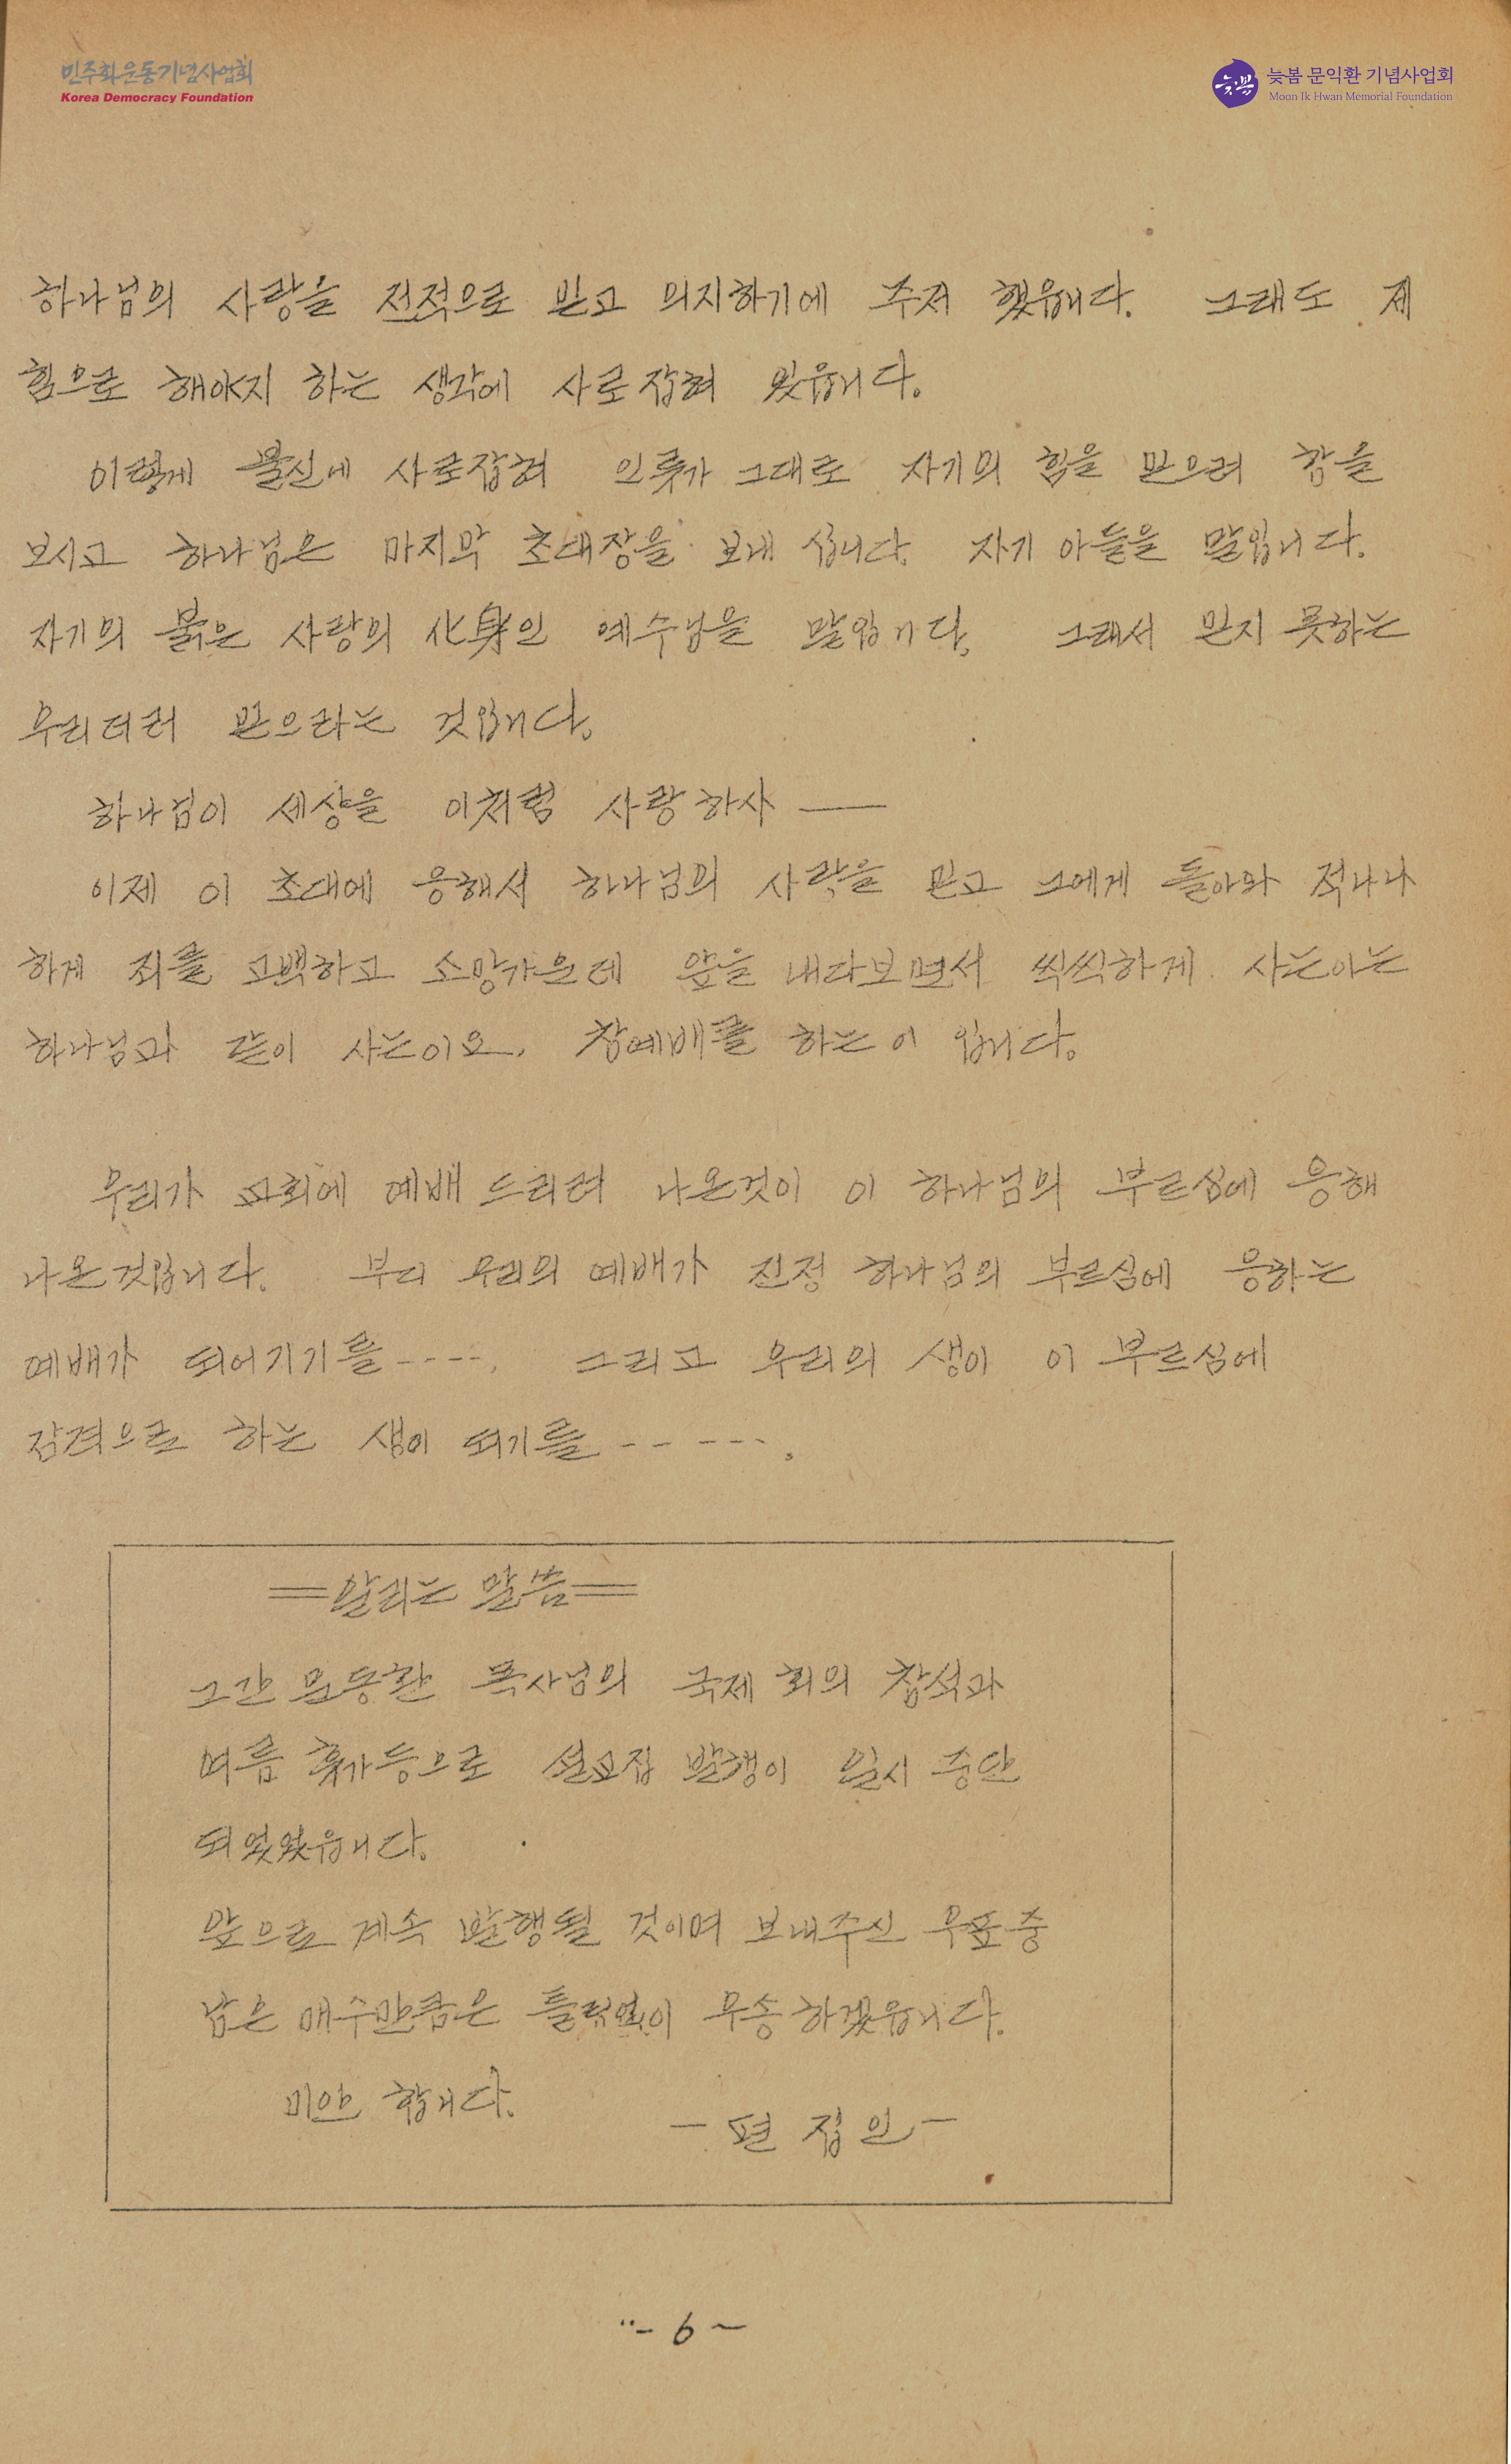 민주화운동기념사업회
Korea Democracy Foundation
늦봄
늦봄 문익환 기념사업회
Moon Ik Hwan Memorial Foundation
하나님의 사랑을 전적으로 믿고 의지하기에 주저 했읍니다. 그래도 제
힘으로 해야지 하는 생각에 사로잡혀 있읍니다.
이렇게 불신에 사로잡혀 인류가 그대로 자기의 힘을 믿으려 함을
보시고 하나님은 마지막 초대장을 보내 십니다. 자기 아들을 말입니다.
자기의 붉은 사랑의 化身인 예수님을 말입니다. 그래서 믿지 못하는
우리더러 믿으라는 것입니다.
하나님이 세상을 이처럼 사랑하사 ——
이제 이 초대에 응해서 하나님의 사랑을 믿고 그에게 돌아와 적나나
하게 죄를 고백하고 소망가운데 앞을 내다보면서 씩씩하게 사는이는
하나님과 같이 사는이오, 참예배를 하는 이 입니다.
우리가 교회에 예배 드리려 나온것이 이 하나님의 부르심에 응해
나온것입니다. 부디 우리의 예배가 진정 하나님의 부르심에 응하는
예배가 되어지기를 ----. 그리고 우리의 생이 이 부르심에
감격으로 하는 생이 되기를 ------.
=알리는 말씀=
그간 문동환 목사님의 국제 회의 참석과
여름 휴가등으로 설교집 발행이 일시 중단
되었었읍니다.
앞으로 계속 발행될 것이며 보내주신 우표중
남은 매수만큼은 틀림없이 우송하겠읍니다.
미안 합니다.
- 편 집 인 -
- 6 -